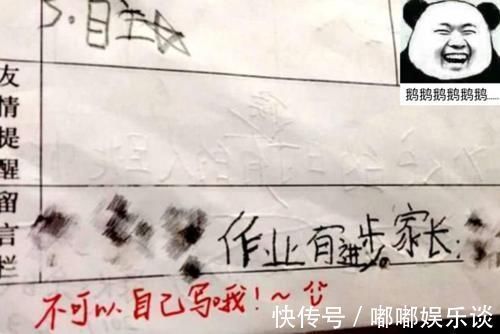 5.自主
鹅鹅鹅鹅鹅鹅......
友情提醒留言栏
作业有进步。家长:
不可以自己写哦!~
快传号/嘟嘟娱乐谈